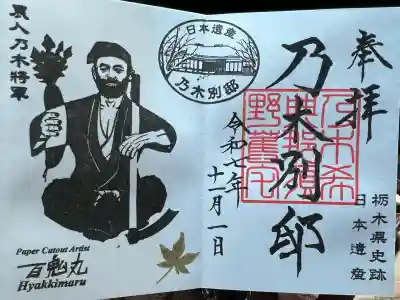 奉拝
乃木別邸
栃木県史跡
日本遺産
乃木希
典那須
野旧宅
令和七年
十一月一日
日本遺産
乃木別邸
農人乃木将軍
Paper Cutout Artist
百鬼丸
Hyakkimaru